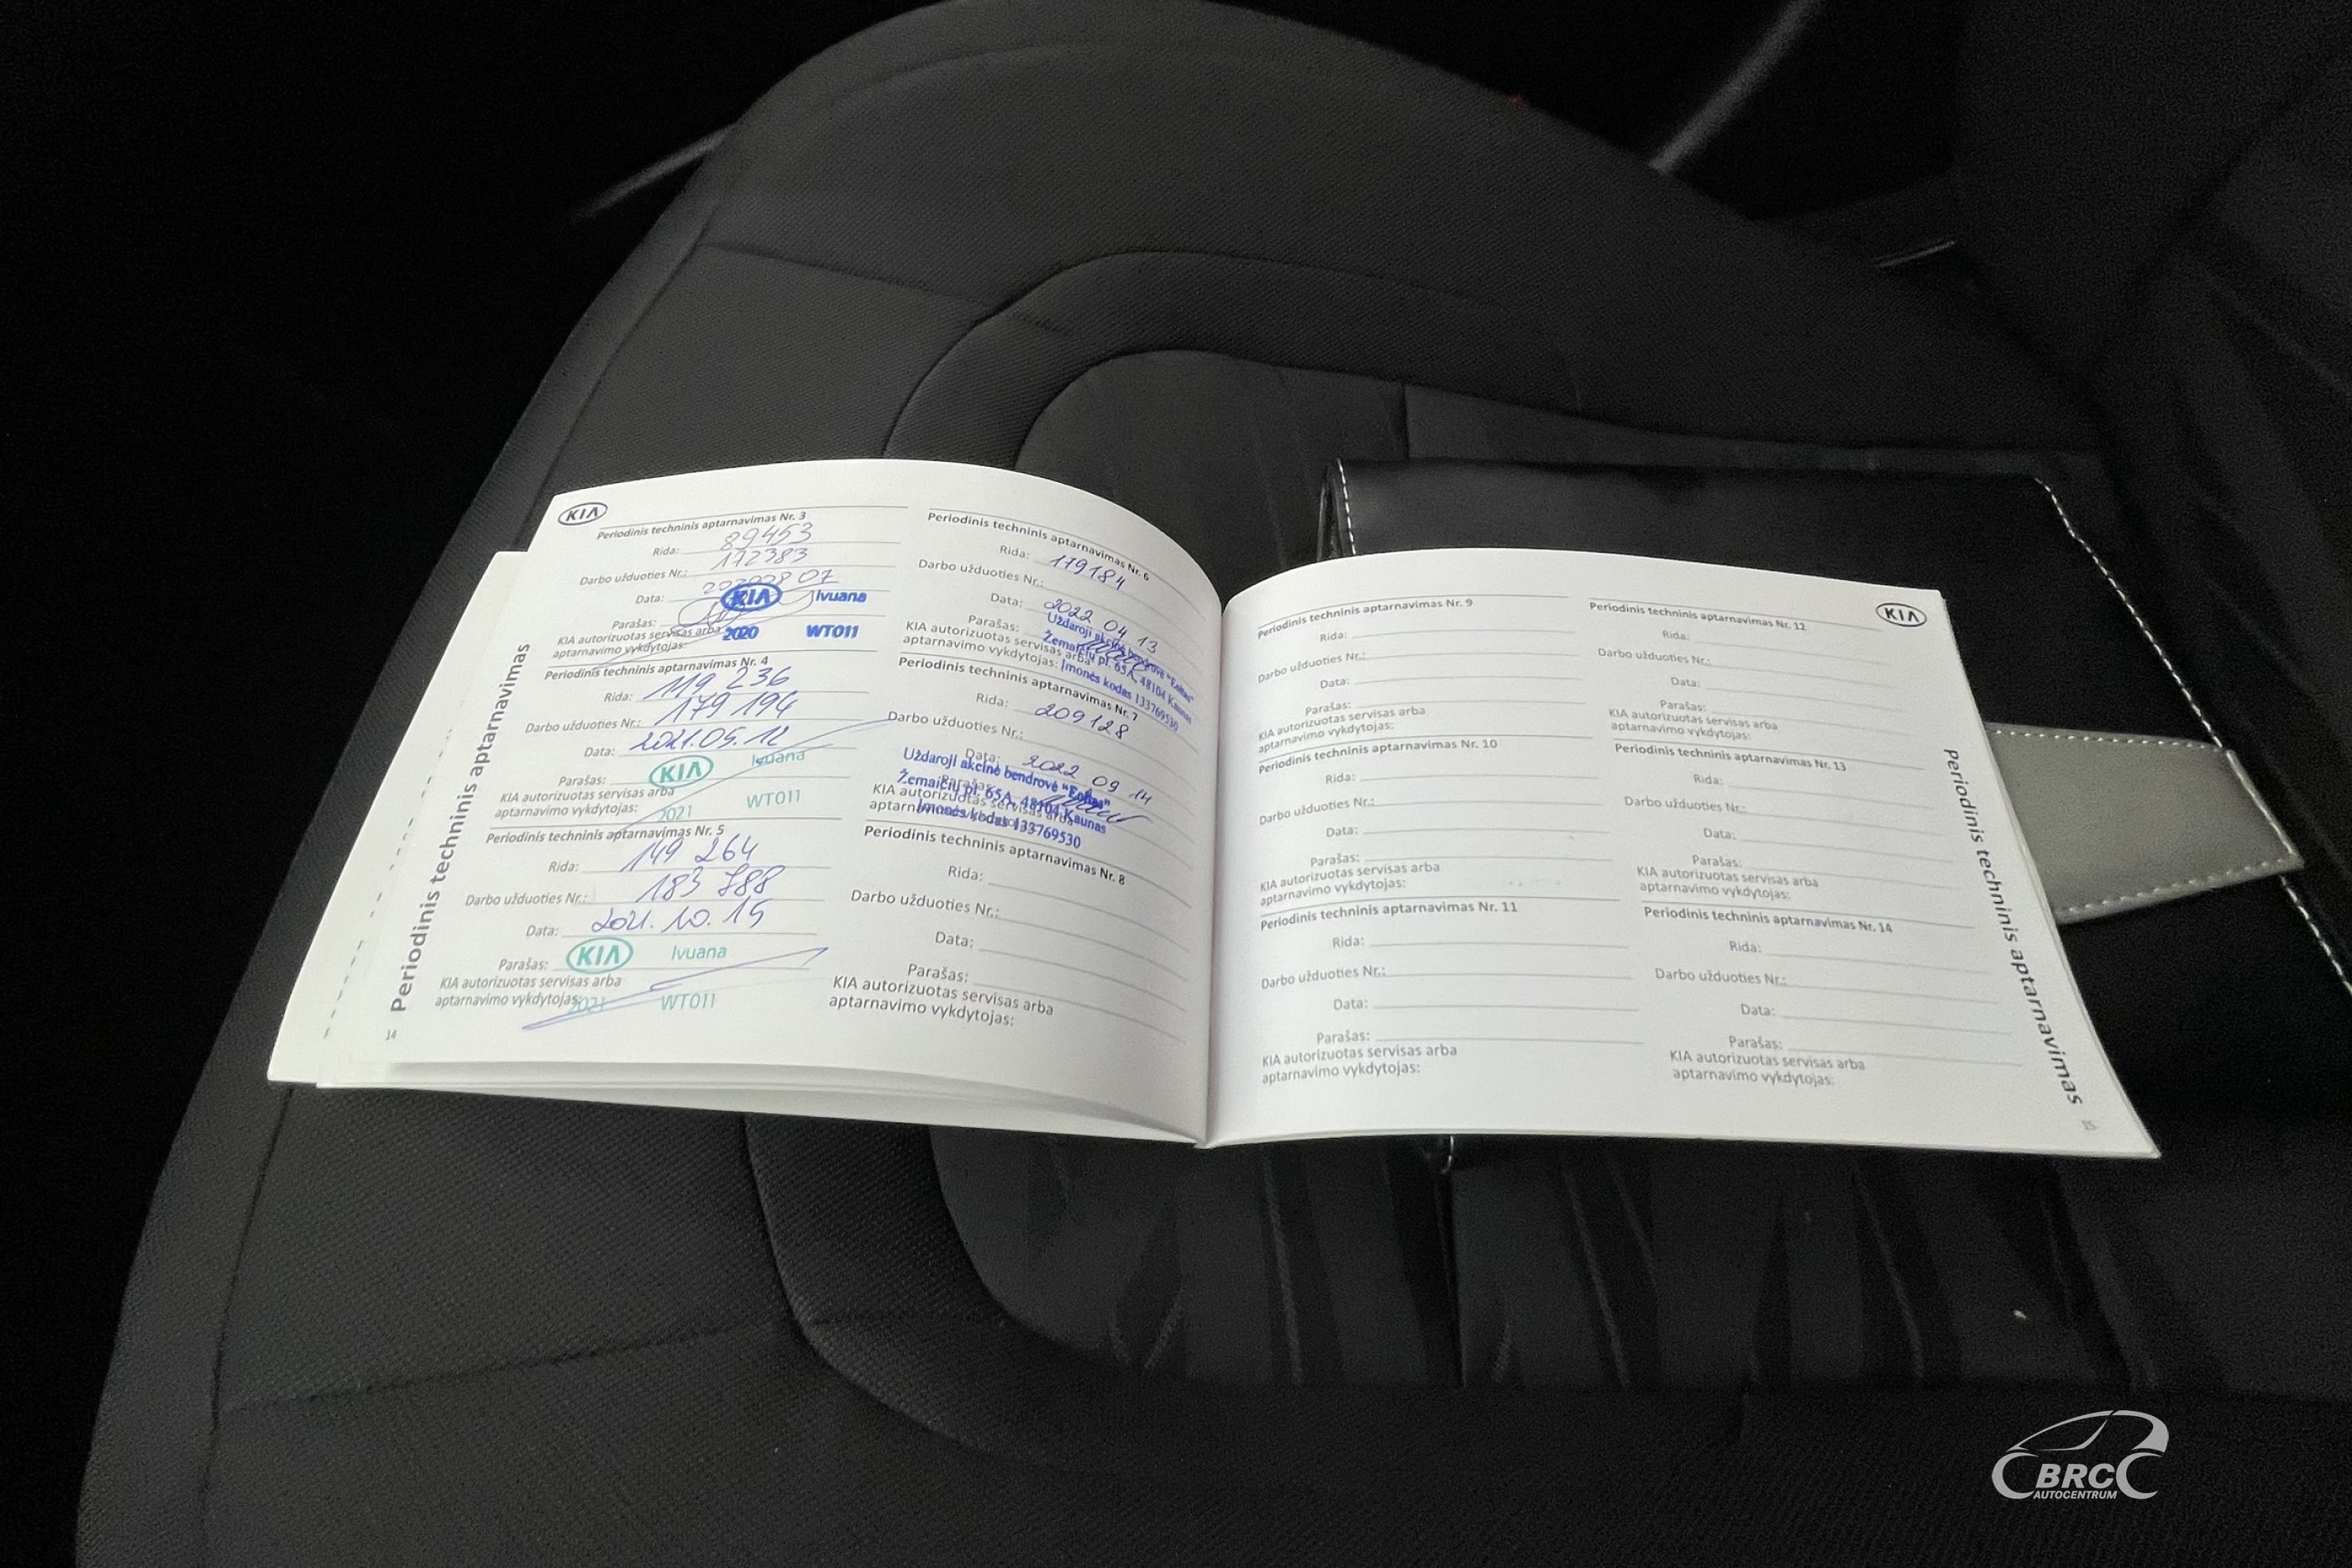 KIA
Periodinis techninis aptarnavimas
Periodinis techninis aptarnavimas Nr. 3
Rida: 89453
Darbo užduoties Nr.: 172383
Data:
KIA Ivuana
Parašas:
KIA autorizuotas servisas arba
aptarnavimo vykdytojas:
2020 WT011
Periodinis techninis aptarnavimas Nr. 4
Rida: 119 236
Darbo užduoties Nr.: 179 194
Data: 2021.05.12
KIA Ivuana
Parašas:
KIA autorizuotas servisas arba
aptarnavimo vykdytojas:
2021 WT011
Periodinis techninis aptarnavimas Nr. 5
Rida: 149 264
Darbo užduoties Nr.: 183 788
Data: 2021.10.15
KIA Ivuana
Parašas:
KIA autorizuotas servisas arba
aptarnavimo vykdytojas:
2021 WT011
14
Periodinis techninis aptarnavimas Nr. 6
Rida: 179184
Darbo užduoties Nr.:
Data: 2022 04 13
Parašas:
KIA autorizuotas servisas arba
aptarnavimo vykdytojas:
Uždaroji akcinė bendrovė
Žemaičių pl. 65A, 48104 Kaunas
Įmonės kodas 133769530
Periodinis techninis aptarnavimas Nr. 7
Rida: 209128
Darbo užduoties Nr.:
Data: 2022 09 14
Parašas:
KIA autorizuotas servisas arba
aptarnavimo vykdytojas:
Uždaroji akcinė bendrovė
Žemaičių pl. 65A, 48104 Kaunas
Įmonės kodas 133769530
Periodinis techninis aptarnavimas Nr. 8
Rida:
Darbo užduoties Nr.:
Data:
Parašas:
KIA autorizuotas servisas arba
aptarnavimo vykdytojas:
Periodinis techninis aptarnavimas Nr. 9
Rida:
Darbo užduoties Nr.:
Data:
Parašas:
KIA autorizuotas servisas arba
aptarnavimo vykdytojas:
Periodinis techninis aptarnavimas Nr. 10
Rida:
Darbo užduoties Nr.:
Data:
Parašas:
KIA autorizuotas servisas arba
aptarnavimo vykdytojas:
Periodinis techninis aptarnavimas Nr. 11
Rida:
Darbo užduoties Nr.:
Data:
Parašas:
KIA autorizuotas servisas arba
aptarnavimo vykdytojas:
KIA
Periodinis techninis aptarnavimas Nr. 12
Rida:
Darbo užduoties Nr.:
Data:
Parašas:
KIA autorizuotas servisas arba
aptarnavimo vykdytojas:
Periodinis techninis aptarnavimas Nr. 13
Rida:
Darbo užduoties Nr.:
Data:
Parašas:
KIA autorizuotas servisas arba
aptarnavimo vykdytojas:
Periodinis techninis aptarnavimas Nr. 14
Rida:
Darbo užduoties Nr.:
Data:
Parašas:
KIA autorizuotas servisas arba
aptarnavimo vykdytojas:
Periodinis techninis aptarnavimas
15
BRC
AUTOCENTRUM